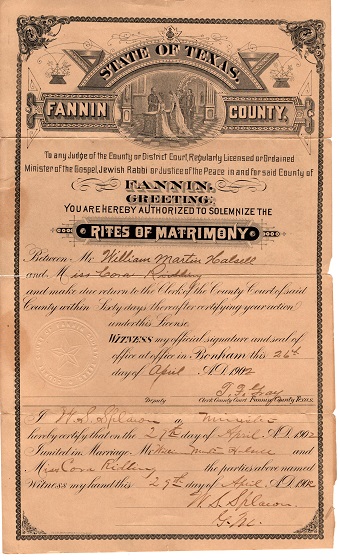 STATE OF TEXAS,
FANNIN COUNTY,
To any Judge of the County or District Court, Regularly Licensed or Ordained
Minister of the Gospel, Jewish Rabbi or Justice of the Peace in and for said County of
FANNIN,
GREETING:
YOU ARE HEREBY AUTHORIZED TO SOLEMNIZE THE
RITES OF MATRIMONY
Between Mr. William Martin Halsell
and Miss Cora
and make due return to the Clerk of the County Court of said
County within Sixty days thereafter certifying your action
under this License.
WITNESS my official signature and seal of
office at office in Bonham this 26th
day of April A.D. 1902
T. F. Gray
Deputy Clerk County Court Fannin County Texas.
I W. S. Splawn a Minister
hereby certify that on the 29th day of April A.D. 1902
I united in Marriage Mr Martin Halsell and
Miss Cora the parties above named
Witness my hand this 29th day of April A.D. 1902
W. S. Splawn